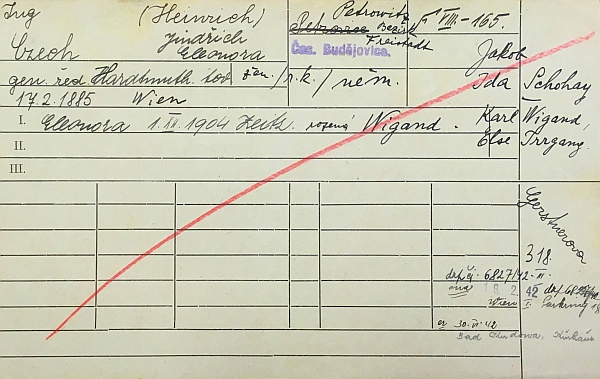 Ing (Heinrich) Petrowitz VIII-165
Jindřich Bezirk
Czech Eleonora Čes. Budějovice. Freistadt Jakob
gen. řed. Hardtmuth. tov. žen. / r.k. / něm. Ida Schohay
17.2.1885 Wien
I. Eleonora 1.III.1904 Zeitz. rozená Wigand. Karl Wigand,
II. Else Irrgang.
III.
Gerstnerova
318.
6827/42-II.
ona 42
Wien I. Parkring 18
on 30.VI.42
Bad Kudowa, Kurhaus